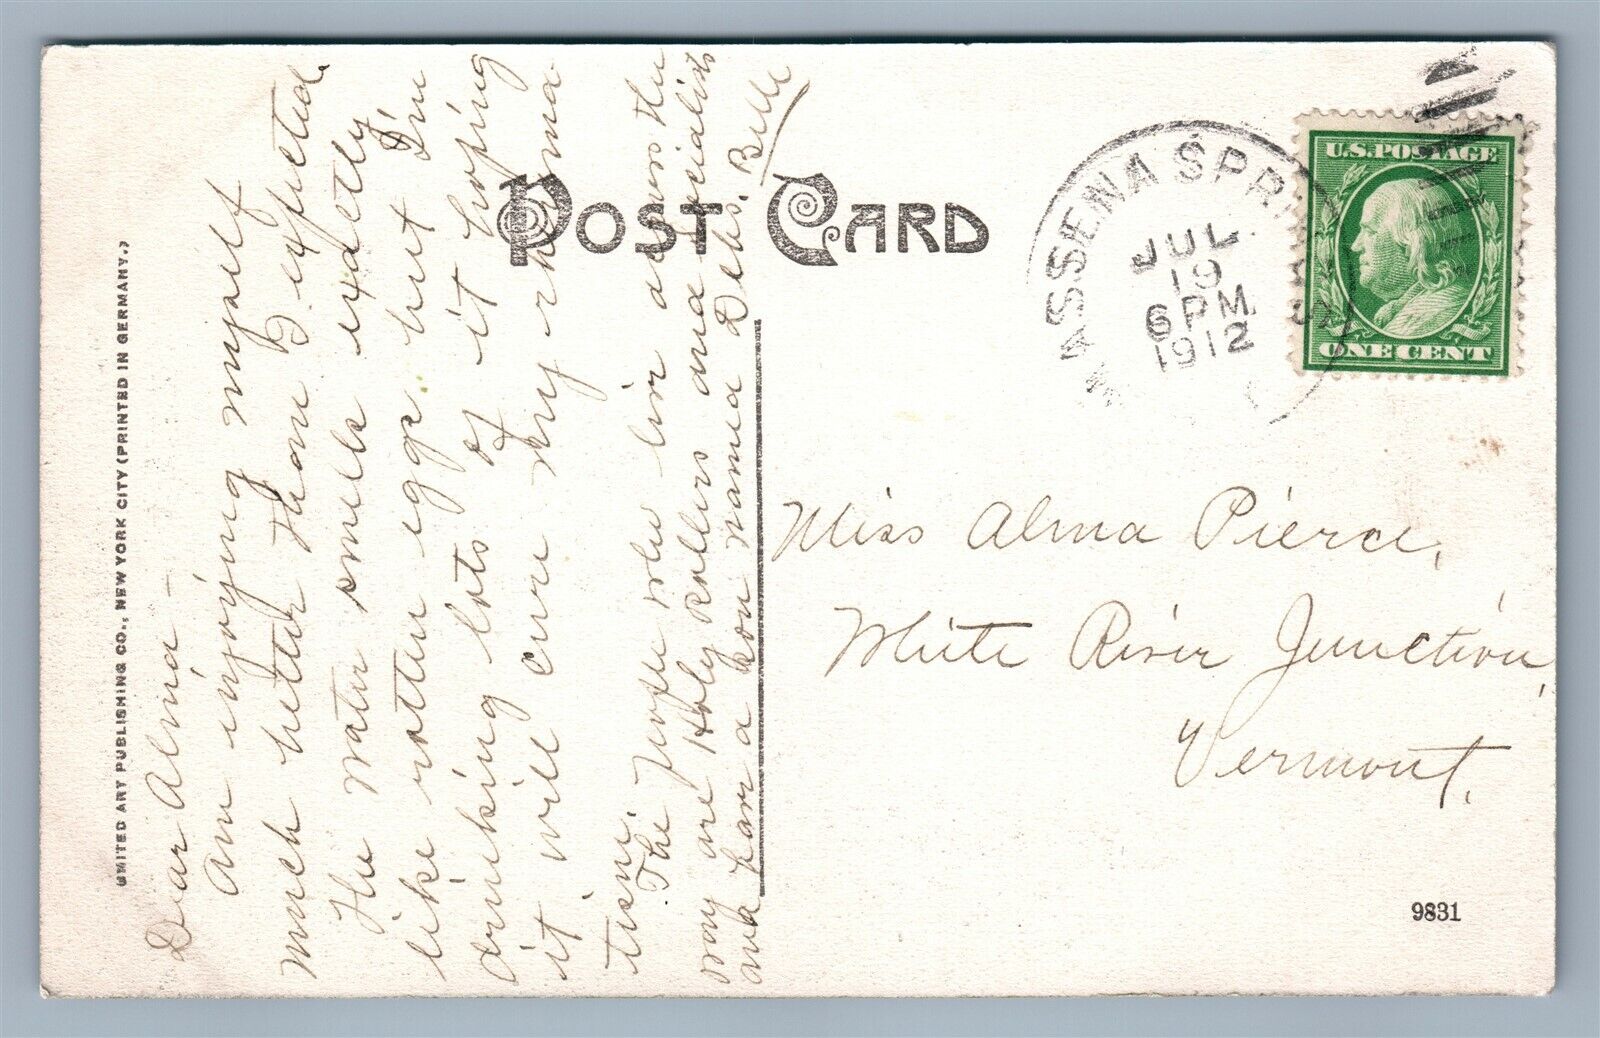 UNITED ART PUBLISHING CO., NEW YORK CITY (PRINTED IN GERMANY.)
POST CARD
MASSENA SPRINGS
JUL
19
6 PM
1912
U.S. POSTAGE
ONE CENT
Dear Alma –
Am enjoying myself
much better than I expected.
The water smells exactly
like rotten eggs but I'm
drinking lots of it hoping
it will cure my rheuma
tism.
The people who live across the
way are Holy Rollers and Socialists
and have a son named Debs. Belle
Miss Alma Pierce,
White River Junction,
Vermont.
9831